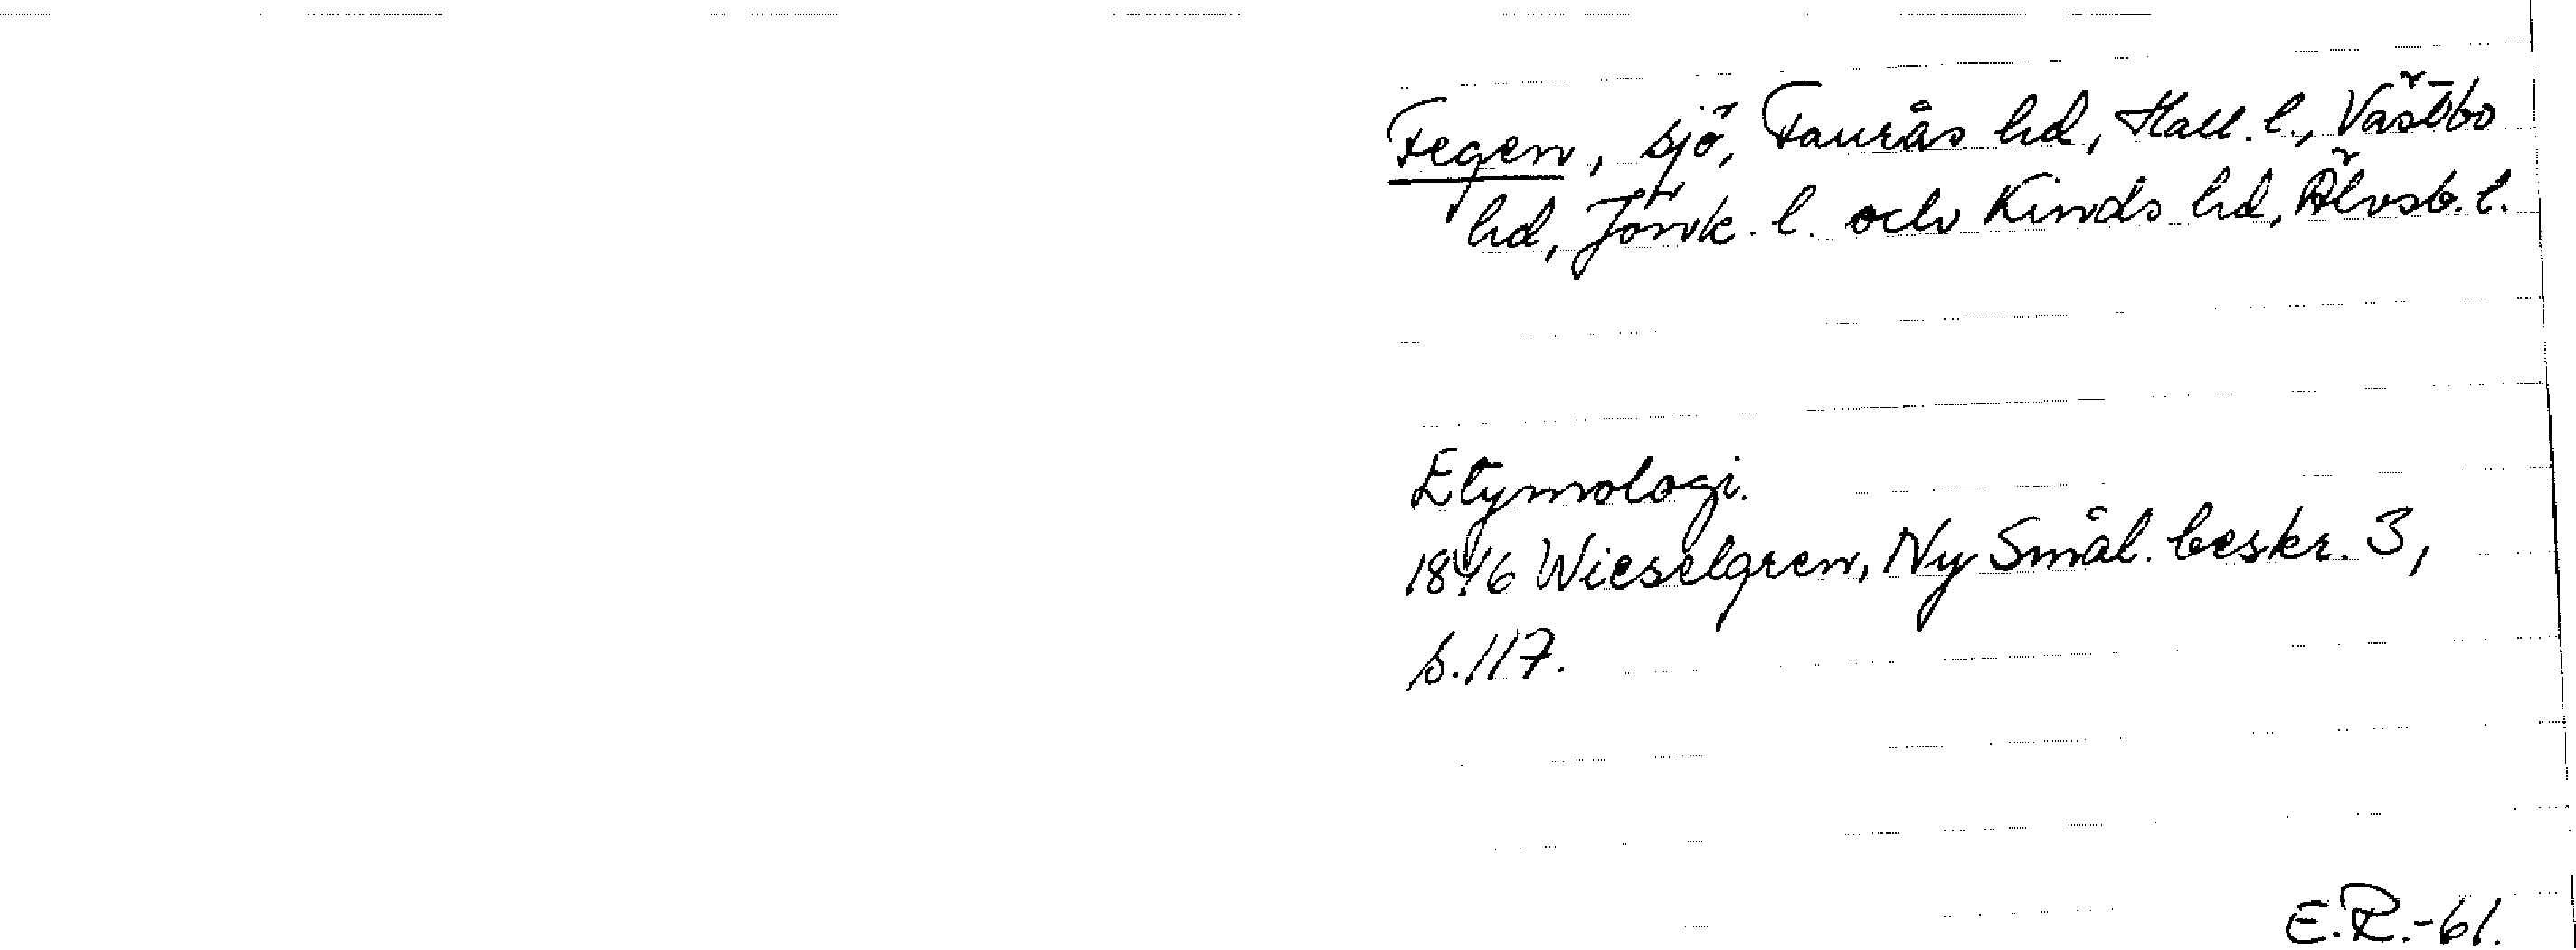 Fegen, sjö, Faurås hd, Hall. l., Västbo
hd, Jönk. l. och Kinds hd, Älvsb. l.
Etymologi.
1846 Wieselgren, Ny Smål. beskr. 3,
s. 117.
E.R.-61.